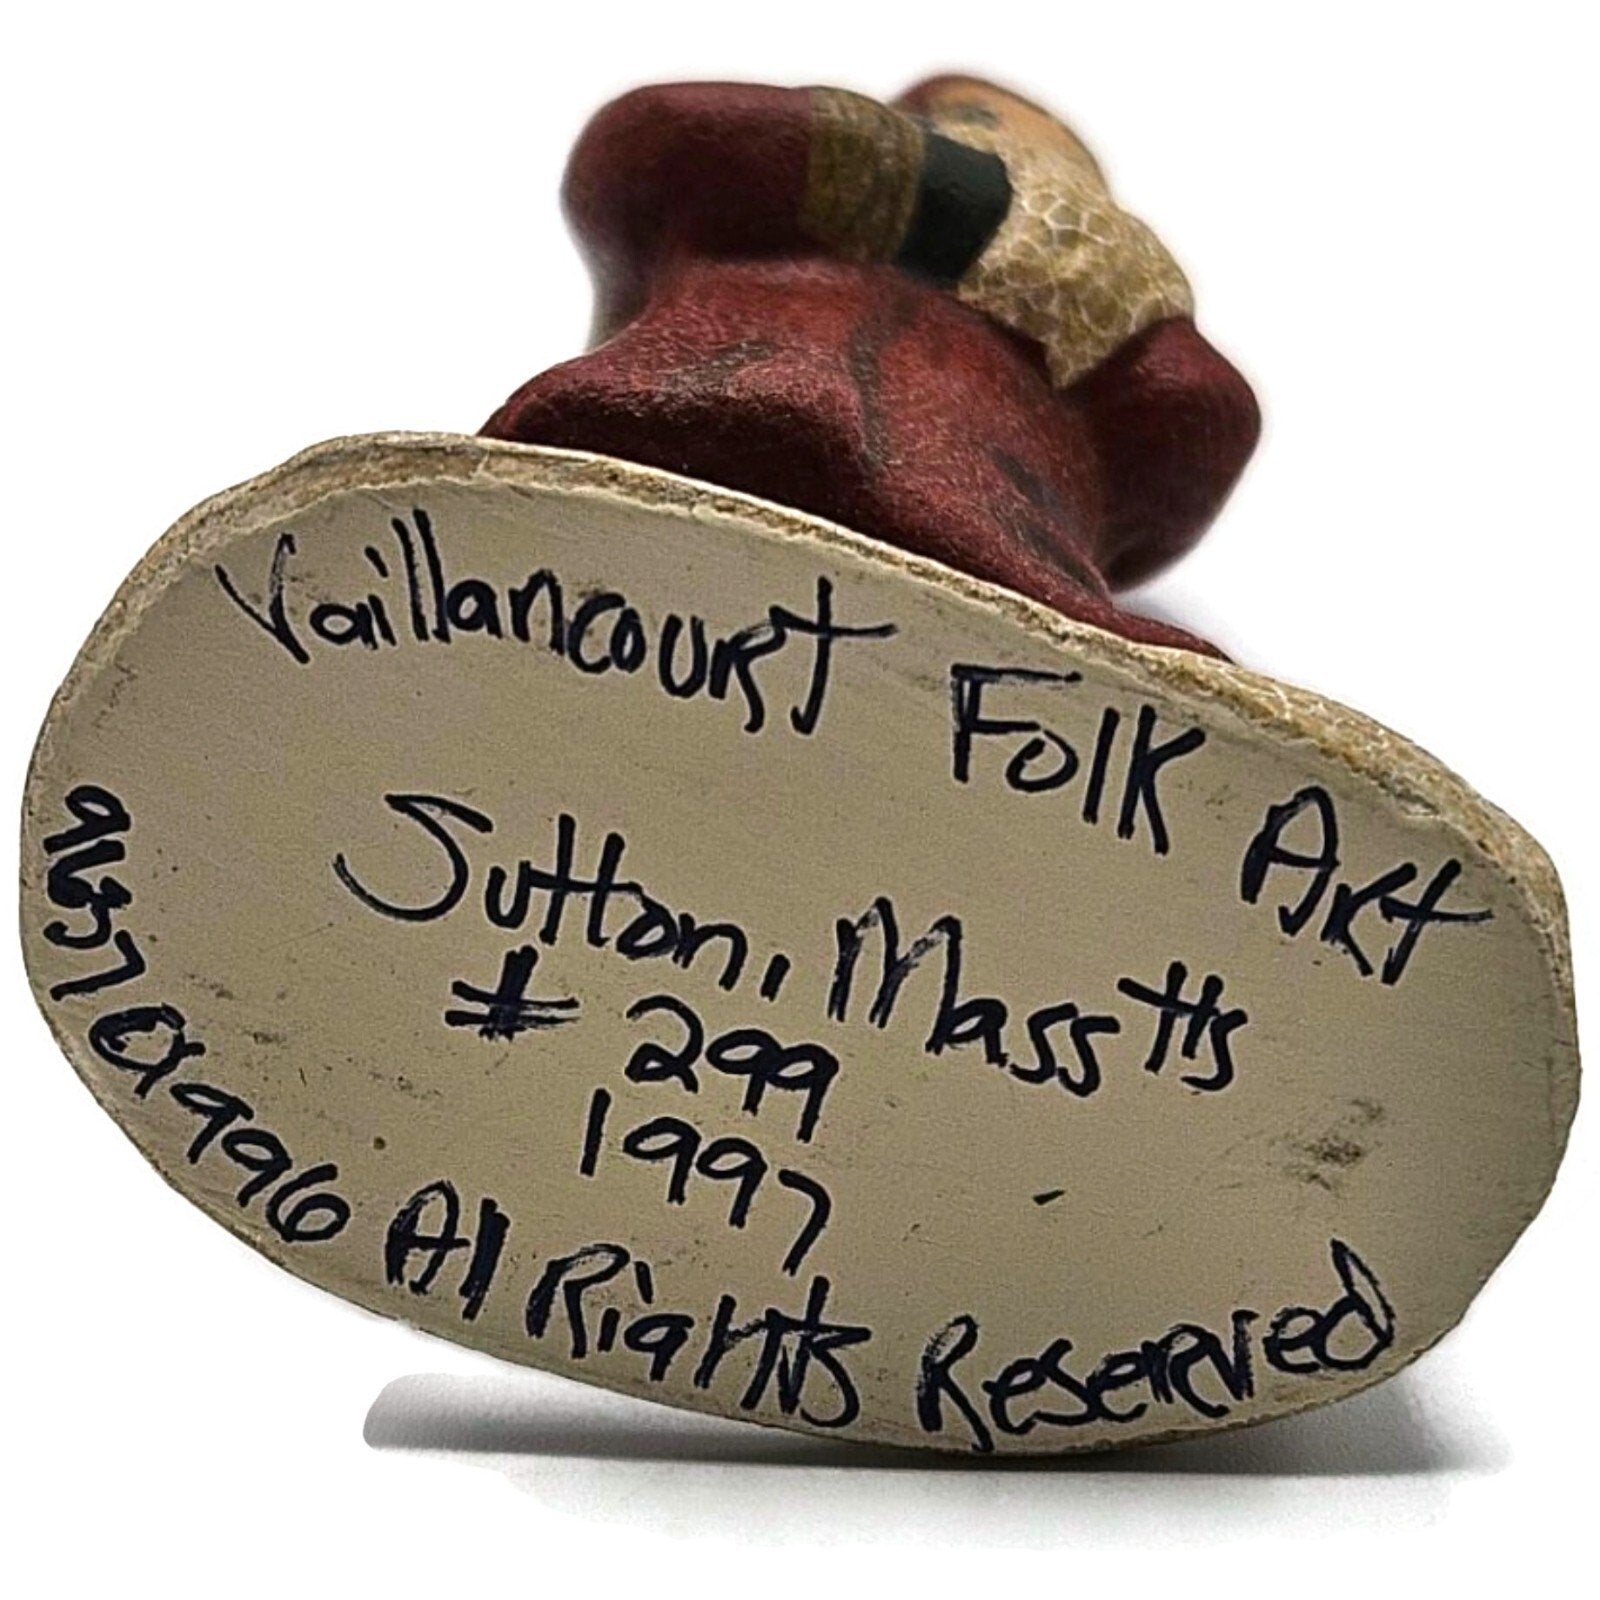 Vaillancourt Folk Art
Sutton, Mass tts
# 299
1997
9637 © 1996 All Rights Reserved